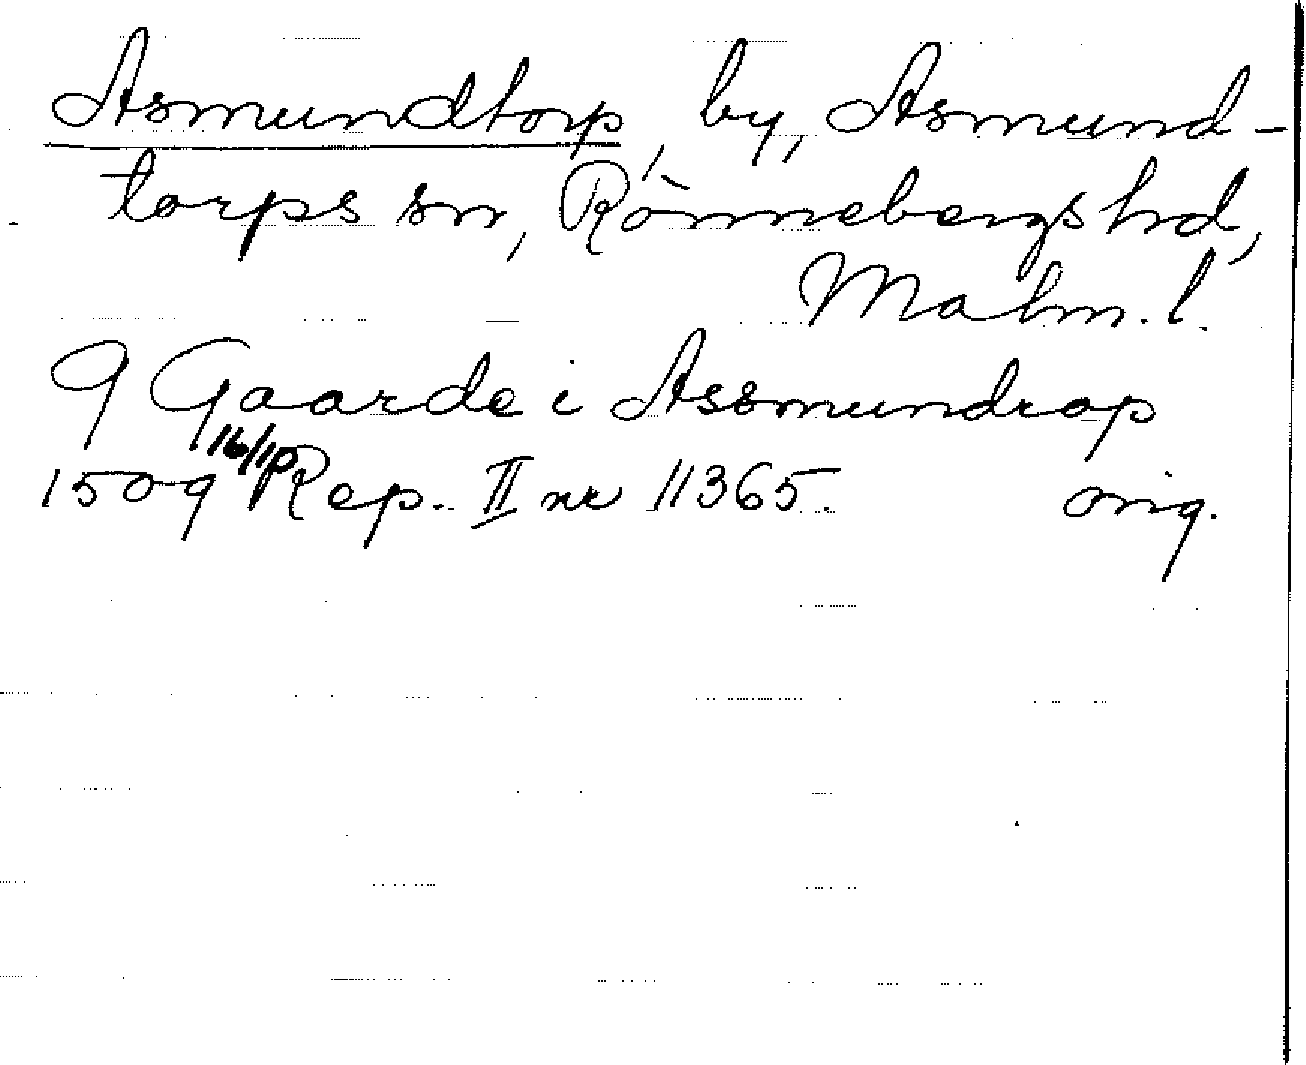 Asmundtorp, by, Asmund-
torps sn, Rönnebergs hd,
Malm. l.
9 Gaarde i Assmundrop
1509 16/10 Rep. II nr 11365. orig.